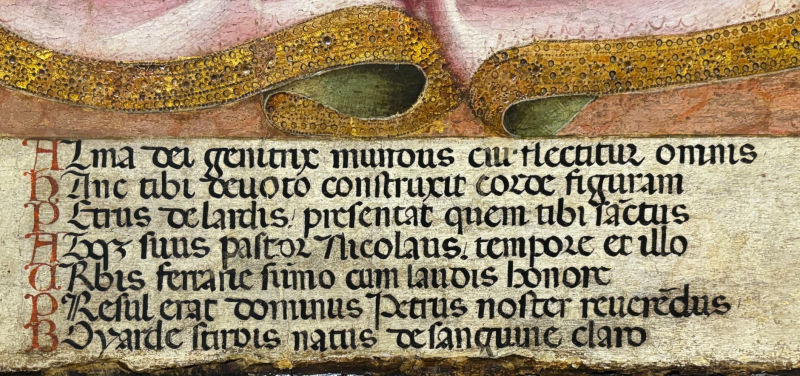 ALma dei genitrix mundus cui flectitur omnis
hAnc tibi deuoto construxit corde figuram
PEtrus de lardis / presentat quem tibi sāctus
ABqꝫ suus pastor Nicolaus / tempore et illo
URbis ferrarie sūmo cum laudis honore
PResul erat dominus Petrus noster reuerēdus /
BOyarde stirpis natus de sanguine claro